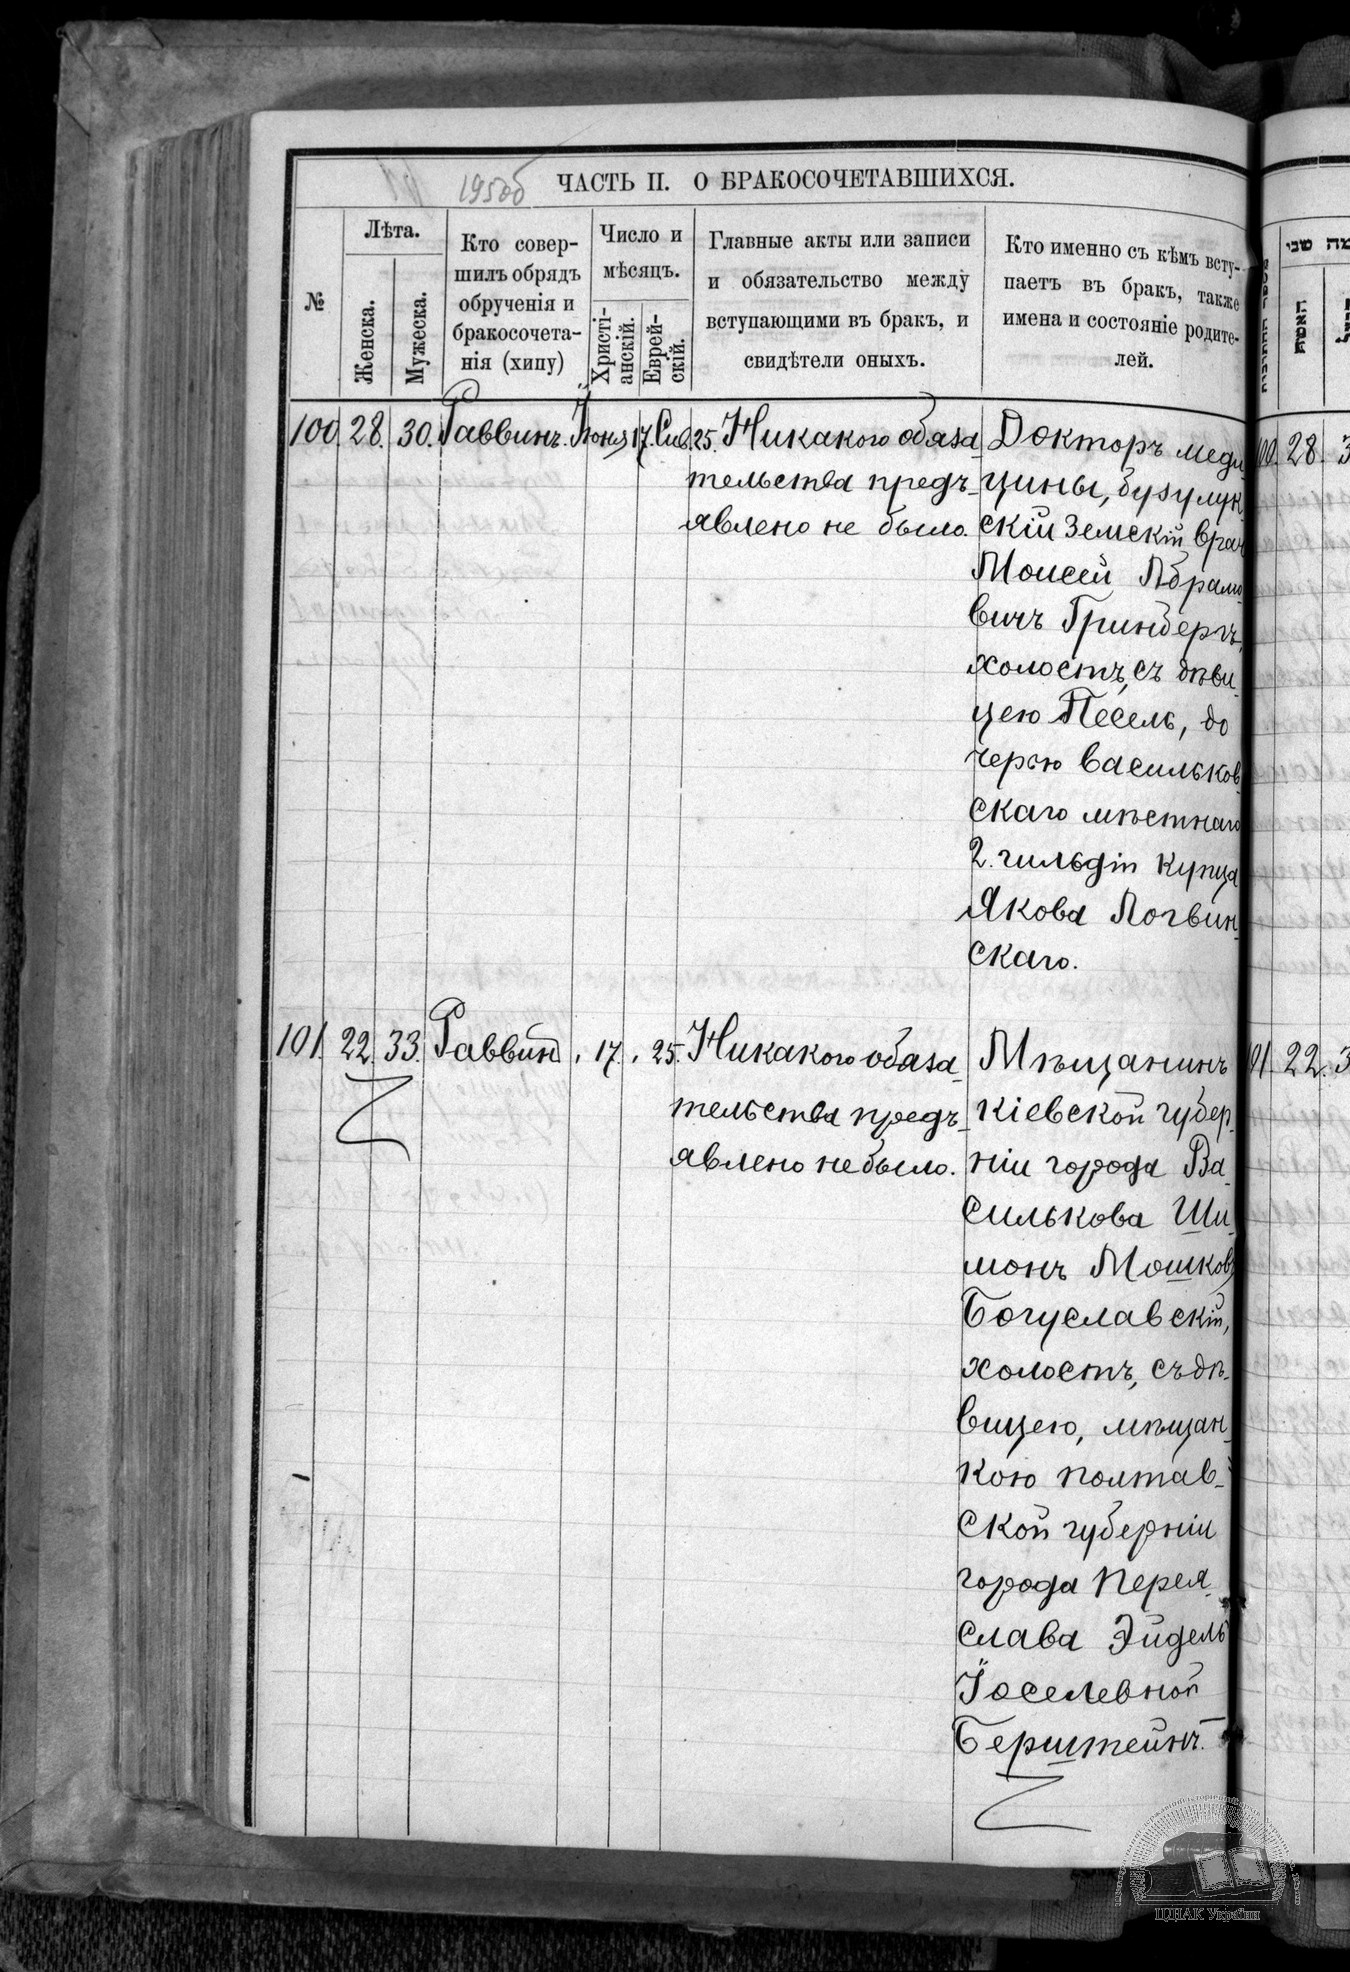 195об
ЧАСТЬ II. О БРАКОСОЧЕТАВШИХСЯ.
№
Лѣта.
Женска.
Мужеска.
Кто совер-
шилъ обрядъ
обрученія и
бракосочета-
нія (хипу)
Число и
мѣсяцъ.
Христі-
анскій.
Еврей-
скій.
Главные акты или записи
и обязательство между
вступающими въ бракъ, и
свидѣтели оныхъ.
Кто именно съ кѣмъ всту-
паетъ въ бракъ, также
имена и состояніе родите-
лей.
100. 28. 30. Раввинъ. Іюня 17. Сив. 25. Никакого обяза-
тельства предъ-
явлено не было.
Докторъ меди
цины, бузулук-
скій Земскій врач
Моисей Абрамо-
вичъ Гринбергъ,
холостъ, съ дѣви-
цею Песель, до
черью васильков-
скаго мѣстнаго
2. гильдіи купца
Якова Логвин-
скаго.
101. 22. 33. Раввин . 17. . 25. Никакого обяза-
тельства предъ-
явлено не было.
Мѣщанинъ
кіевской губер-
ніи города Ва-
силькова Ши-
монъ Мошковъ
Богуславскій,
холостъ, съ дѣ-
вицею, мѣщан-
кою полтав-
ской губерніи
города Перея-
слава Эйдель
Іоселевной
Берштейнъ.
100. 28. 3
101. 22. 3
ЦДІАК України